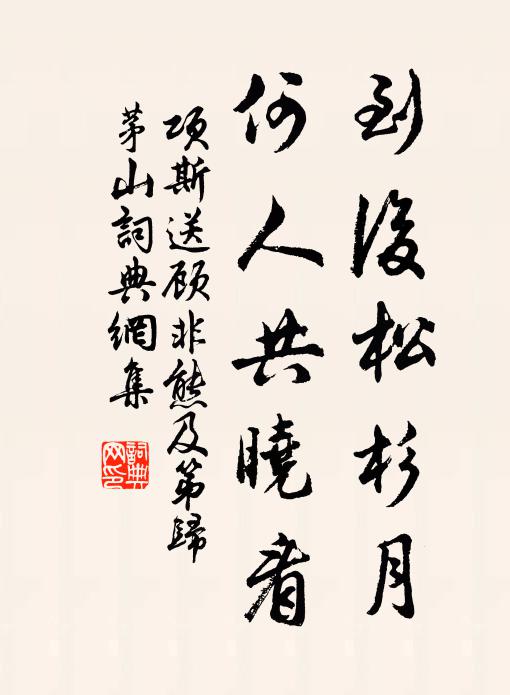 到後松杉月
何人共曉看
項斯送顾非熊及第歸
茅山詞典網集
詞典网印